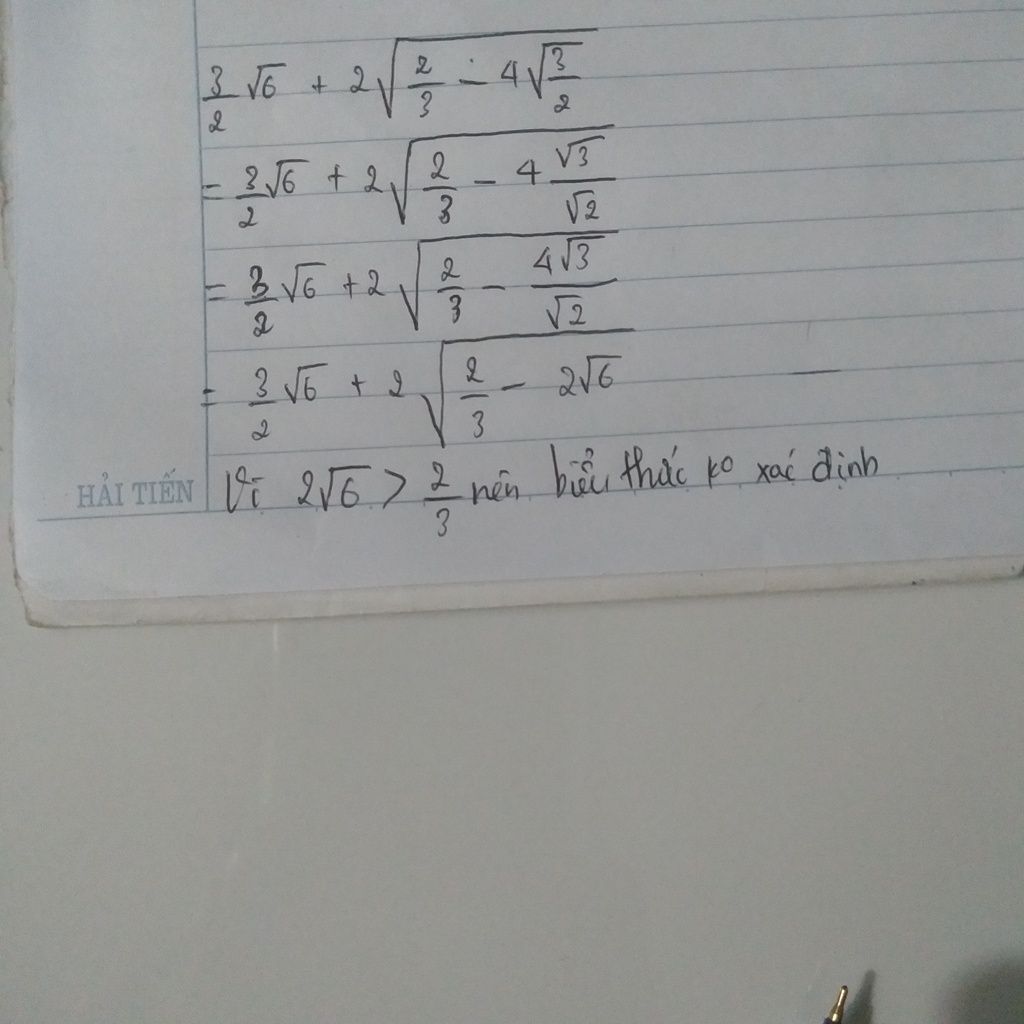 3/2 √6 + 2√(2/3 - 4√(3/2))
= 3/2 √6 + 2√(2/3 - 4 √3/√2)
= 3/2 √6 + 2√(2/3 - 4√3/√2)
= 3/2 √6 + 2√(2/3 - 2√6)
HẢI TIẾN Vì 2√6 > 2/3 nên biểu thức ko xác định